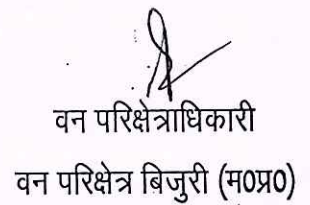 वन परिक्षेत्राधिकारी
वन परिक्षेत्र बिजुरी (म0प्र0)